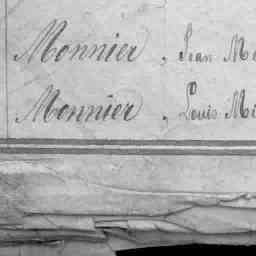 Monnier, Jean M
Monnier, Louis Mi